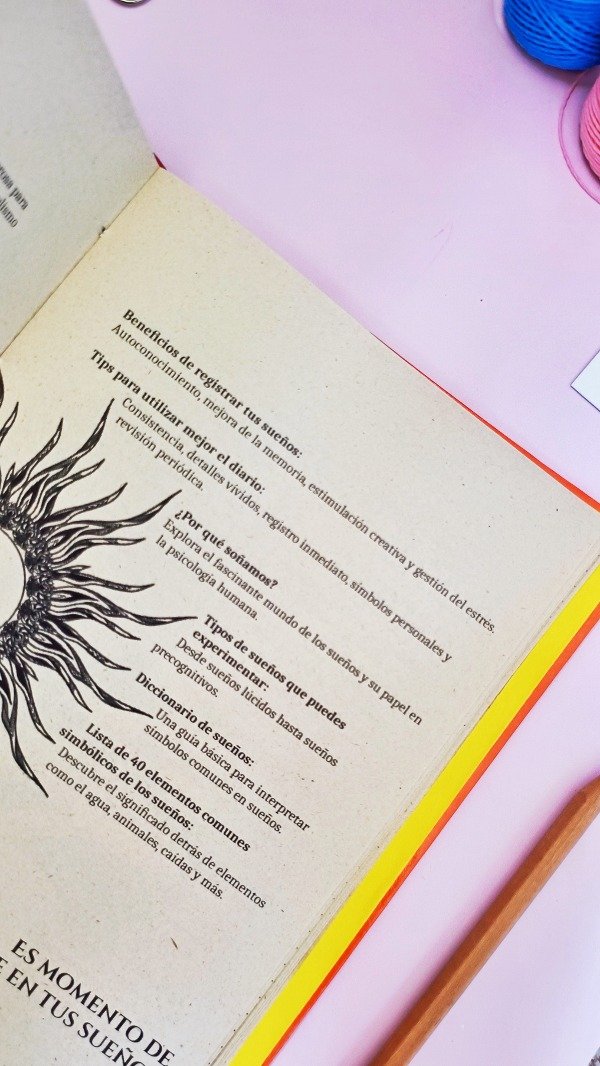 para
Beneficios de registrar tus sueños:
Autoconocimiento, mejora de la memoria, estimulación creativa y gestión del estrés.
Tips para utilizar mejor el diario:
Consistencia, detalles vívidos, registro inmediato, símbolos personales y
revisión periódica.
¿Por qué soñamos?
Explora el fascinante mundo de los sueños y su papel en
la psicología humana.
Tipos de sueños que puedes
experimentar:
Desde sueños lúcidos hasta sueños
precognitivos.
Diccionario de sueños:
Una guía básica para interpretar
símbolos comunes en sueños.
Lista de 40 elementos comunes
simbólicos de los sueños:
Descubre el significado detrás de elementos
como el agua, animales, caídas y más.
ES MOMENTO DE
EN TUS